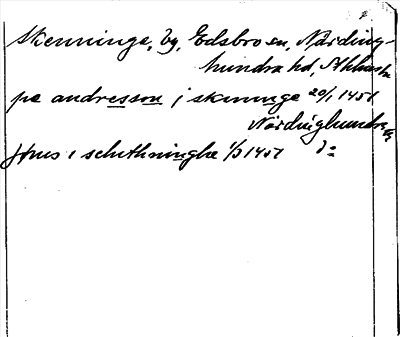 Skenninge, by, Edsbro sn, Närding-
hundra hd, Sthlms ln
pe andresson j skeninge 20/1 1451
Närdinghundra hd
jöns i schethninghe 1/3 1451 do